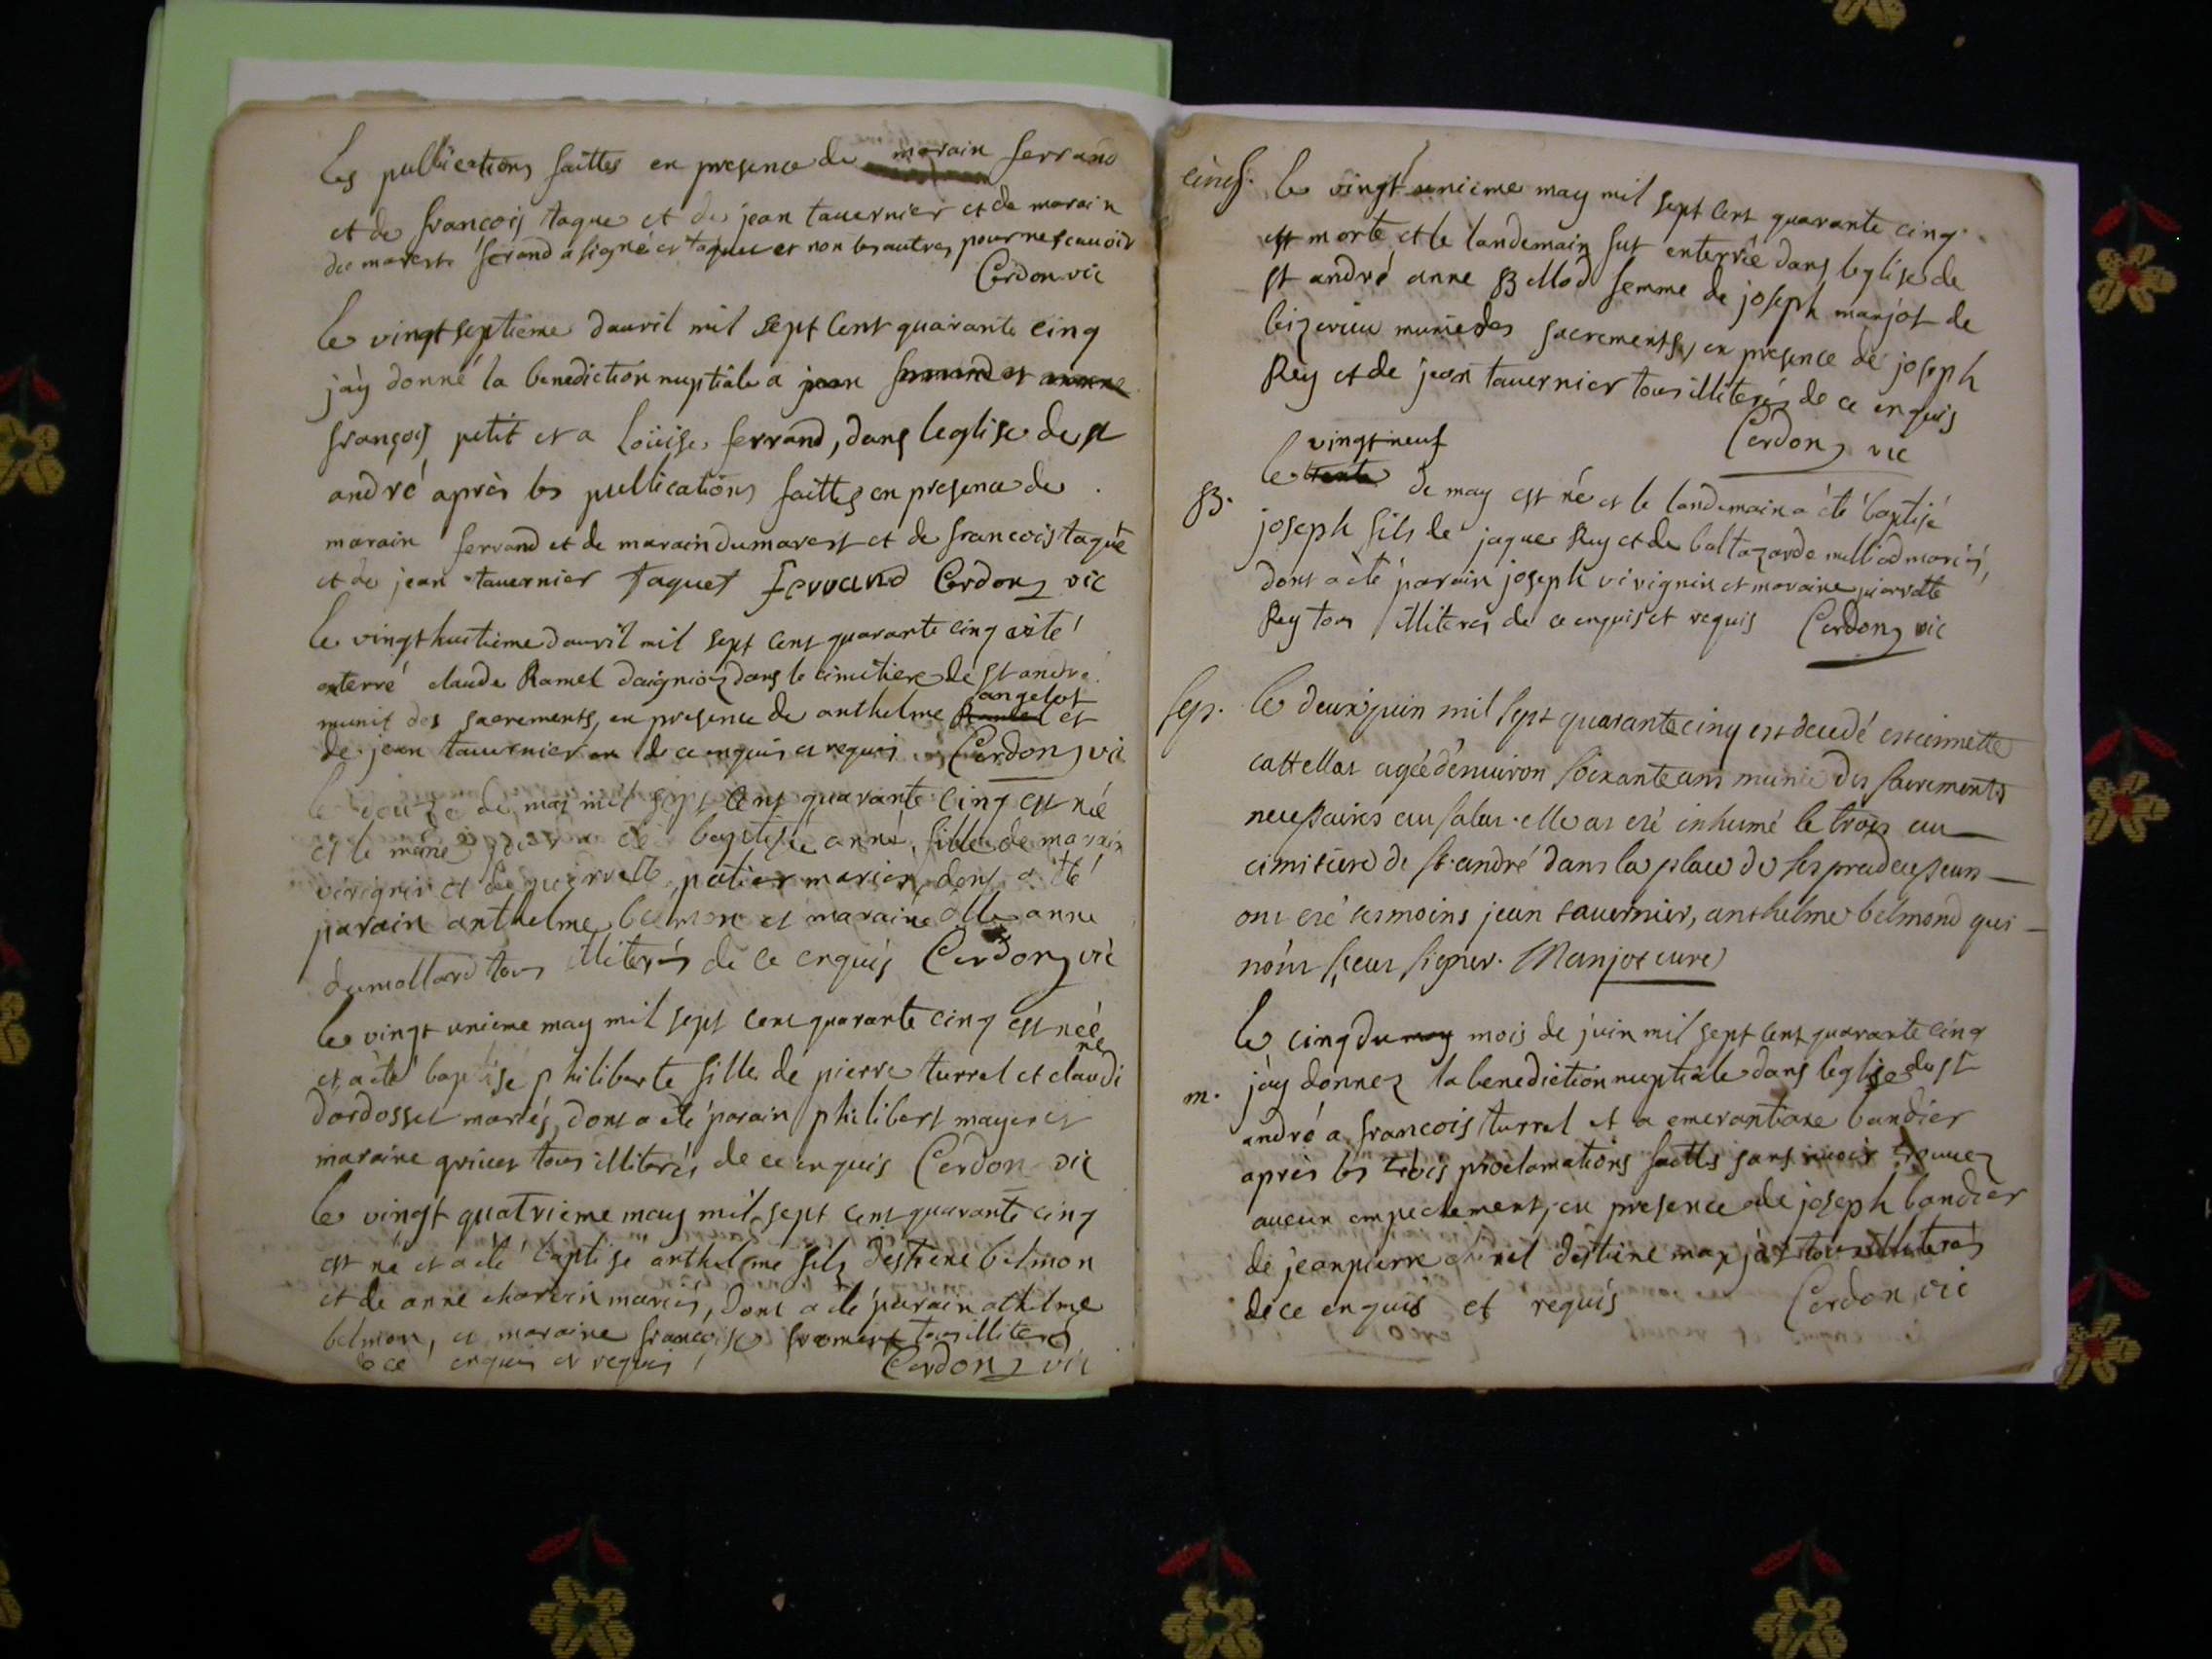 les publications faittes en presence de marain ferrand
et de francois taque et de jean tavernier et de marain
du marest ferand a signé et taquet et non les autres pour ne scauoir
Cerdon vic
le vingt septieme dauril mil sept cent quarante cinq
jay donné la benediction nuptiale a jean et
françois petit et a Loüise ferrand, dans leglise de st
andré après les publications faittes en presence de
marain ferrand et de marain dumarest et de francois taque
et de jean tavernier taquet ferrand Cerdon vic
le vingt huitieme dauril mil sept cent quarante cinq a été
enterré claude Ramel daignioz dans le cimitiere de st andré
angelot
munit des sacrements, en presence de anthelme Ramel et
de jean tavernier de ce enquis et requis Cerdon vic
le de may mil sept cent quarante cinq est née
et le meme jour a été baptisée anne, fille de marain
virignin et de pierrette maries, dont a été
parain anthelme belmon et maraine anne
dumollard tous illiterés de ce enquis Cerdon vic
le vingt unieme may mil sept cent quarante cinq est née
et a été baptisé philiberte fille de pierre turrel et claudine
dardosset mariés, dont a été parain philibert mayer et
maraine tous illiterés de ce enquis Cerdon vic
le vingt quatrieme may mil sept cent quarante cinq
est né et a été baptisé anthelme fils destiene belmon
et de anne charvin mariés, dont a été parain athelme
belmon, et maraine francoise froment tous illiterés
de ce enquis et requis Cerdon vic
le vingt unieme may mil sept cent quarante cinq
est morte et le landemain fut enterrée dans leglise de
st andré anne B Mod femme de joseph marjot de
munie des sacrements, en presence de joseph
Rey et de jean tavernier tous illiterés de ce enquis
Cerdon vic
vingt neuf
le trente de may est né et le landemain a été baptisé
B.
joseph fils de jaque Rey et de baltazarde milliod mariés,
dont a été parain joseph virignin et maraine pierrette
Rey tous illiteres de ce enquis et requis Cerdon vic
sep. le deux juin mil sept quarante cinq est decedé estiennette
cattellat agée denuiron soixante ans munie des sacrements
necessaires au salut. elle at eté inhumé le trois au
cimitiere de st. andré dans la place de ses predecesseurs
ont eté temoins jean tauernier, anthelme belmond qui
n'ont sceut signer. Manjot curé
le cinq du may mois de juin mil sept cent quarante cinq
m. jay donnez la benediction nuptiale dans leglise de st
andré a francois turrel et a emerantiane bandier
après les trois proclamations faittes sans avoir trouuez
aucun empechement, en presence de joseph bandier
de jean pierre chinel destiene manjot tous illiterés
de ce enquis et requis Cerdon vic